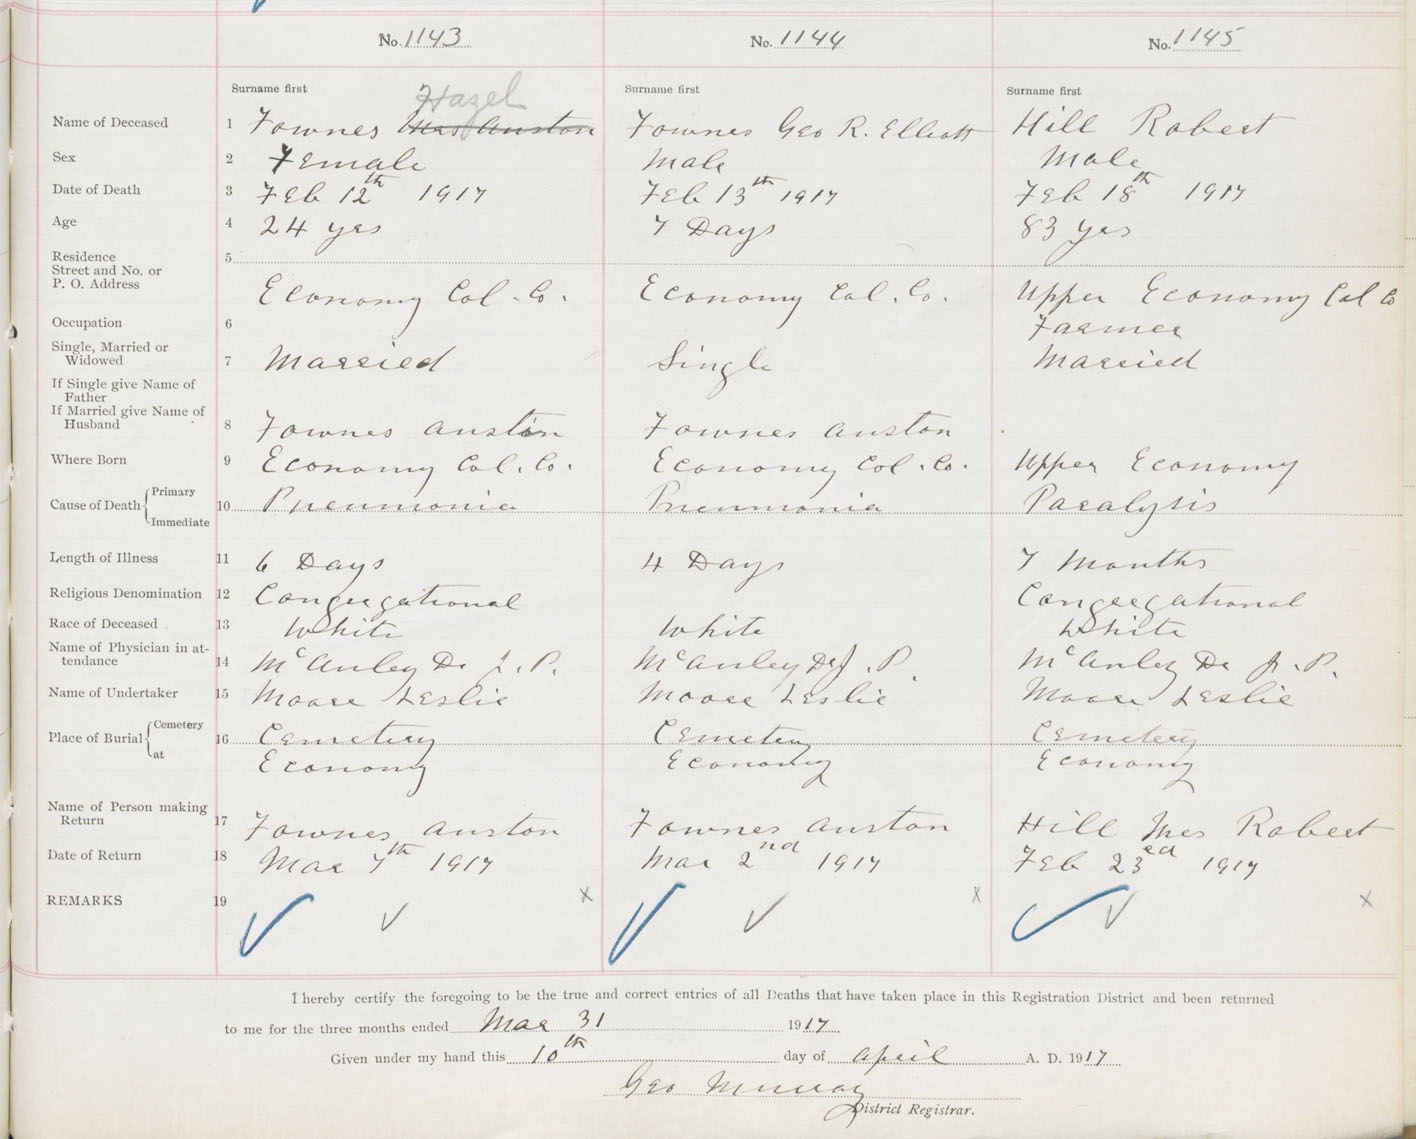 No. 1143 No. 1144 No. 1145
Surname first Surname first Surname first
Hazel
Name of Deceased 1 Fownes Mrs Auston Fownes Geo R. Elliott Hill Robert
Sex 2 Female Male Male
Date of Death 3 Feb 12th 1917 Feb 13th 1917 Feb 18th 1917
Age 4 24 yrs 7 Days 83 yrs
Residence 5
Street and No. or
P. O. Address Economy Col. Co. Economy Col. Co. Upper Economy Col Co
Occupation 6 Farmer
Single, Married or
Widowed 7 Married Single Married
If Single give Name of
Father
If Married give Name of
Husband 8 Fownes Austin Fownes Auston
Where Born 9 Economy Col. Co. Economy Col. Co. Upper Economy
Primary
Cause of Death 10 Pneumonia Pneumonia Paralysis
Immediate
Length of Illness 11 6 Days 4 Days 7 Months
Religious Denomination 12 Congregational Congregational
Race of Deceased 13 White White White
Name of Physician in at-
tendance 14 McAuley Dr J. P. McAuley Dr J. P. McAuley Dr J. P.
Name of Undertaker 15 Moore Leslie Moore Leslie Moore Leslie
Cemetery
Place of Burial 16 Cemetery Cemetery Cemetery
at Economy Economy Economy
Name of Person making
Return 17 Fownes Auston Fownes Auston Hill Mrs Robert
Date of Return 18 Mar 7th 1917 Mar 2nd 1917 Feb 23rd 1917
REMARKS 19 x x x
I hereby certify the foregoing to be the true and correct entries of all Deaths that have taken place in this Registration District and been returned
to me for the three months ended Mar 31 1917
Given under my hand this 10th day of April A. D. 1917
Geo Murray
District Registrar.